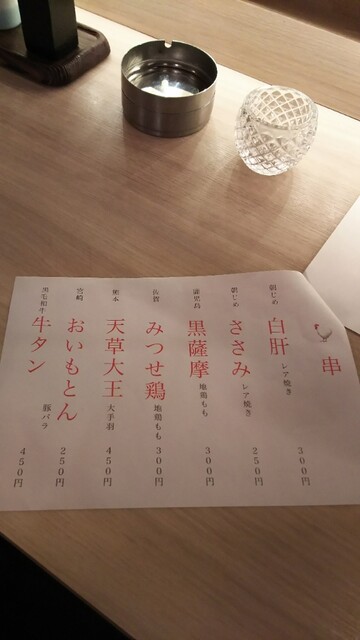 串
朝じめ 白肝 レア焼き 300円
朝じめ ささみ レア焼き 250円
鹿児島 黒薩摩 地鶏もも 300円
佐賀 みつせ鶏 地鶏もも 300円
熊本 天草大王 大手羽 450円
宮崎 おいもとん 豚バラ 250円
黒毛和牛 牛タン 450円